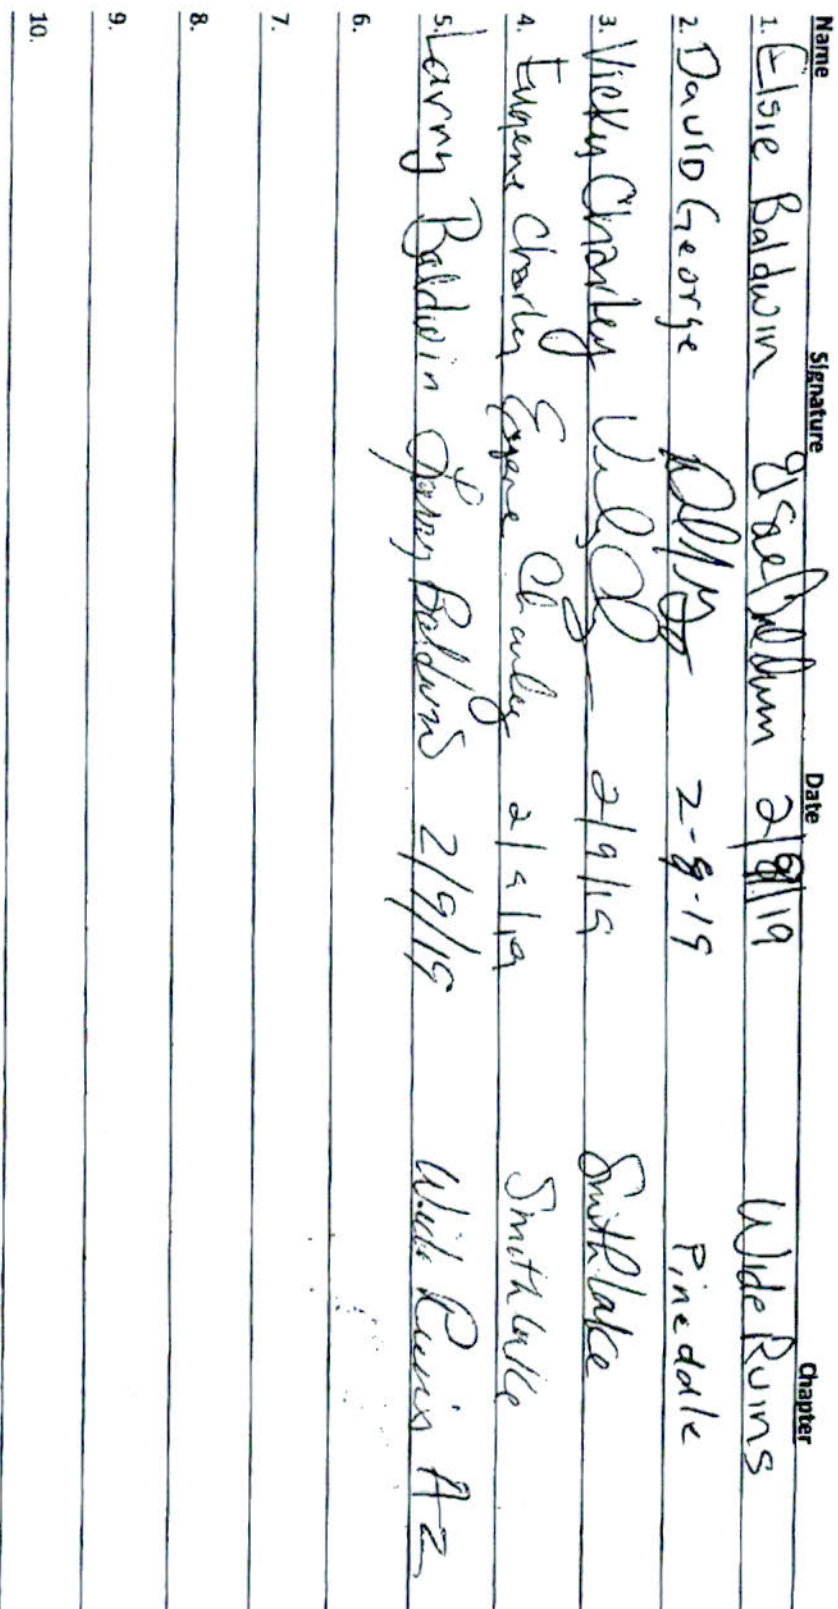 Name Signature Date Chapter
1. Elsie Baldwin Elsie Baldwin 2/8/19 Wide Ruins
2. DaviD George 2-8-19 Pinedale
3. Vicky Charley 2/9/19 Smith lake
4. Eugene Charley Eugene Charley 2/9/19 Smith lake
5. Larry Baldwin Larry Baldwin 2/9/19 Wide Ruins AZ
6.
7.
8.
9.
10.